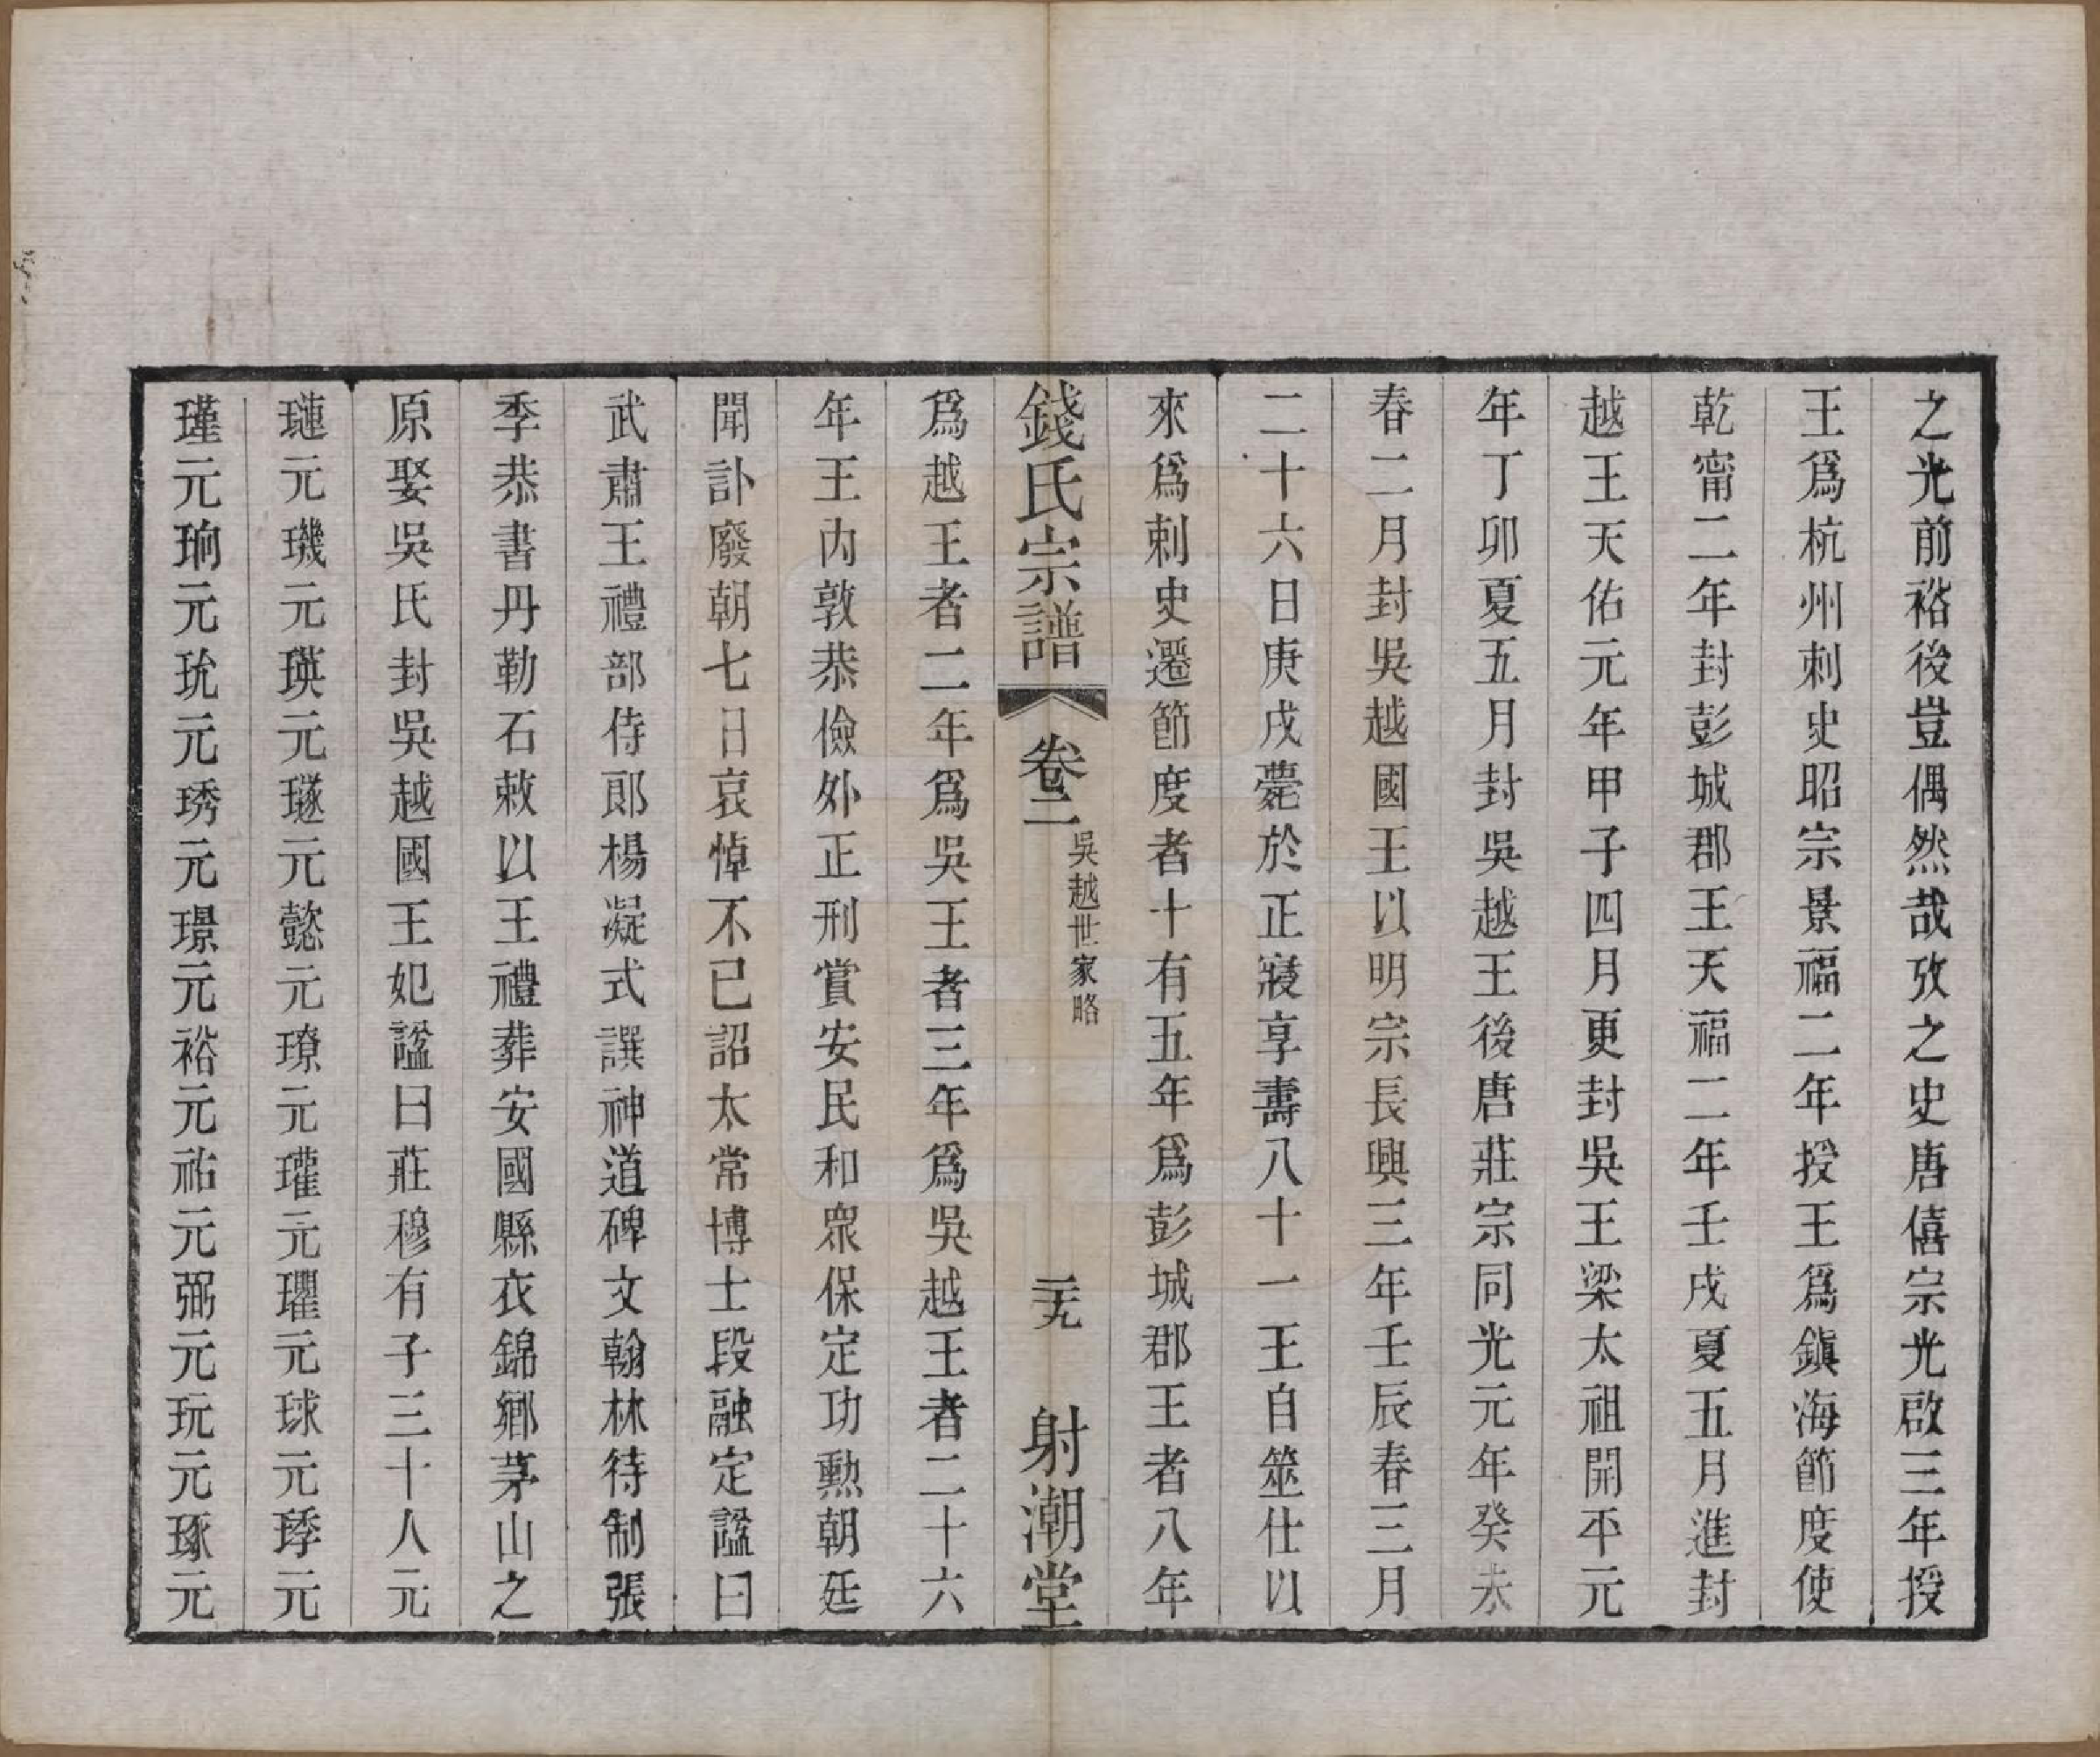 之光前裕後豈偶然哉攷之史唐僖宗光啟三年授
王爲杭州刺史昭宗景福二年授王爲鎮海節度使
乾甯二年封彭城郡王天福二年壬戌夏五月進封
越王天佑元年甲子四月更封吳王梁太祖開平元
年丁卯夏五月封吳越王後唐莊宗同光元年癸未
春二月封吳越國王以明宗長興三年壬辰春三月
二十六日庚戌薨於正寢享壽八十一王自筮仕以
來爲刺史遷節度者十有五年爲彭城郡王者八年
錢氏宗譜 卷二 吳越世家略 二十九 射潮堂
爲越王者二年爲吳王者三年爲吳越王者二十六
年王內敦恭儉外正刑賞安民和眾保定功勲朝廷
聞訃廢朝七日哀悼不已詔太常博士段融定諡曰
武肅王禮部侍郎楊凝式譔神道碑文翰林待制張
季恭書丹勒石敕以王禮葬安國縣衣錦鄉茅山之
原娶吳氏封吳越國王妃諡曰莊穆有子三十八人元
璉元璣元瑛元璲元懿元璙元瓘元瓘元球元㻎元
瑾元珦元珫元琇元璟元裕元祐元弼元玩元琢元